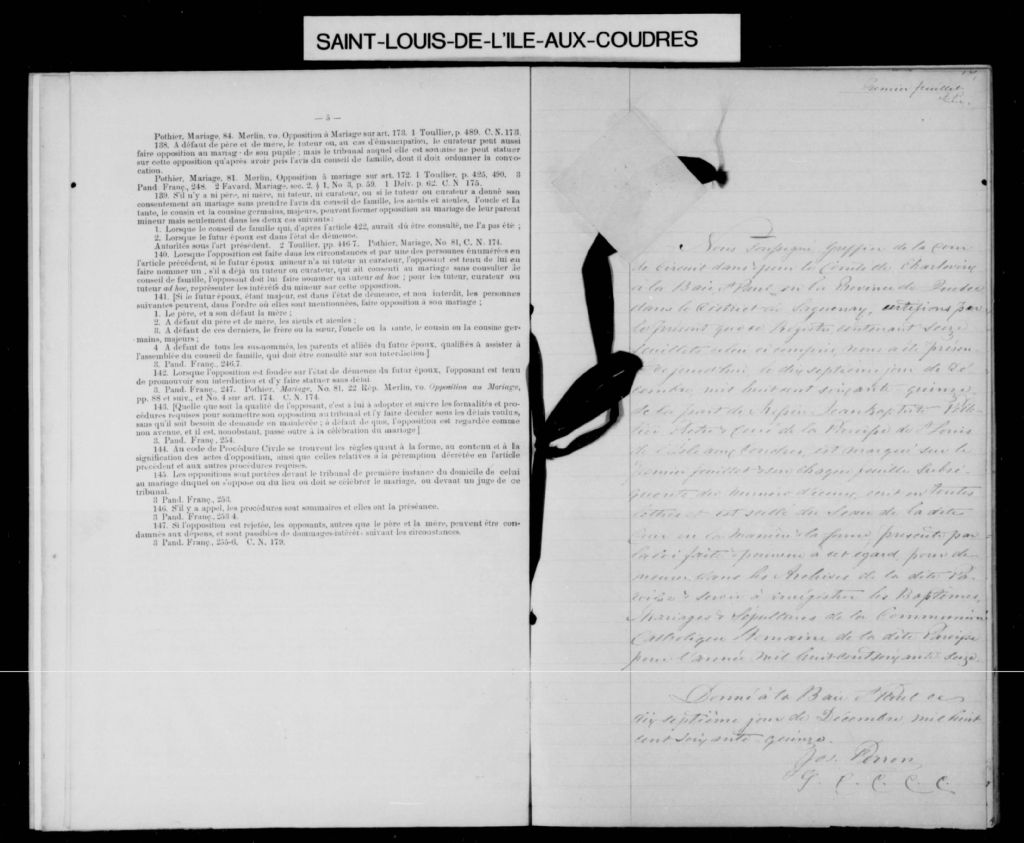 SAINT-LOUIS-DE-L'ILE-AUX-COUDRES
— 5 —
Pothier, Mariage, 84. Merlin, vo. Opposition à Mariage sur art. 173. 1 Toullier, p. 489. C. N. 173.
138. A défaut de père et de mère, le tuteur ou, au cas d'émancipation, le curateur peut aussi
faire opposition au mariage de son pupile; mais le tribunal auquel elle est soumise ne peut statuer
sur cette opposition qu'après avoir pris l'avis du conseil de famille, dont il doit ordonner la convo-
cation.
Pothier, Mariage, 81. Merlin, Opposition à mariage sur art. 172. 1 Toullier, p. 425, 490. 3
Pand Franç., 248. 2 Favard, Mariage, sec. 2, § 1, No 3, p. 59. 1 Delv. p. 62. C. N 175.
139. S'il n'y a ni père, ni mère, ni tuteur, ni curateur, ou si le tuteur ou curateur a donné son
consentement au mariage sans prendre l'avis du conseil de famille, les aïeuls et aïeules, l'oncle et la
tante, le cousin et la cousine germains, majeurs, peuvent former opposition au mariage de leur parent
mineur mais seulement dans les deux cas suivants:
1. Lorsque le conseil de famille qui, d'après l'article 422, aurait dû être consulté, ne l'a pas été;
2. Lorsque le futur époux est dans l'état de démence.
Autorités sous l'art présédent. 2 Toullier, pp. 446-7. Pothier, Mariage, No 81, C. N. 174.
140. Lorsque l'opposition est faite dans les circonstances et par une des personnes énumérées en
l'article précédent, si le futur époux mineur n'a ni tuteur ni curateur, l'opposant est tenu de lui en
faire nommer un, s'il a déjà un tuteur ou curateur, qui ait consenti au mariage sans consulter le
conseil de famille, l'opposant doit lui faire nommer un tuteur ad hoc; pour les tuteur, curateur ou
tuteur ad hoc, représenter les intérêts du mineur sur cette opposition.
141. [Si le futur époux, étant majeur, est dans l'état de démence, et non interdit, les personnes
suivantes peuvent, dans l'ordre où elles sont mentionnées, faire opposition à son mariage;
1. Le père, et à son défaut la mère;
2. A défaut du père et de mère, les aïeuls et aïeules;
3. A défaut de ces derniers, le frère ou la sœur, l'oncle ou la tante, le cousin ou la cousine ger-
mains, majeurs;
4 A défaut de tous les sus-nommés, les parents et alliés du futur époux, qualifiés à assister à
l'assemblée du conseil de famille, qui doit être consulté sur son interdiction.]
3. Pand. Franç., 246,7.
142. Lorsque l'opposition est fondée sur l'état de démence du futur époux, l'opposant est tenu
de promouvoir son interdiction et d'y faire statuer sans délai.
3. Pand. Franç., 247. Pothier, Mariage, No. 81. 22 Rép. Merlin, vo. Opposition au Mariage,
pp. 88 et suiv., et No. 4 sur art. 174. C. N. 174.
143. [Quelle que soit la qualité de l'opposant, c'est à lui à adopter et suivre les formalités et pro-
cédures requises pour soumettre son opposition au tribunal et l'y faire décider sous les délais voulus,
sans qu'il soit besoin de demande en mainlevée; à défaut de quoi, l'opposition est regardée comme
non avenue, et il est, nonobstant, passé outre à la célébration du mariage]
3. Pand. Franç., 254.
144. Au code de Procédure Civile se trouvent les règles quant à la forme, au contenu et à la
signification des actes d'opposition, ainsi que celles relatives à la péremption décrétée en l'article
précédent et aux autres procédures requises.
145. Les oppositions sont portées devant le tribunal de première instance du domicile de celui
au mariage duquel on s'oppose ou du lieu où doit se célébrer le mariage, ou devant un juge de ce
tribunal.
3 Pand. Franç., 253.
146. S'il y a appel, les procédures sont sommaires et elles ont la préséance.
3 Pand. Franç., 253 4.
147. Si l'opposition est rejetée, les opposants, autres que le père et la mère, peuvent être con-
damnés aux dépens, et sont passibles de dommages-intérêts suivant les circonstances.
3 Pand. Franç., 255-6. C. N. 179.
Premier feuillet
Nous Soussigné Greffier de la Cour
de Circuit dans & pour le Comté de Charlevoix
à la Baie St Paul en la Province de Québec
dans le District de Saguenay, certifions par
le présent que ce Registre contenant seize
feuillets celui ci compris, nous a été présen-
té aujourd'hui le dix septième jour de Dé-
cembre mil huit cent soixante quinze
de la part de Messire Jean Baptiste
Ptre & Curé de la Paroisse de St Louis
de l'Isle aux Coudres, est marqué sur le
premier feuillet & sur chaque feuille subsé-
quente du numéro d'icelui, écrit en toutes
lettres & est scellé du Sceau de la dite
Cour en la manière & la forme prescrite par
la loi faite & pourvue à cet égard, pour de-
meurer dans les Archives de la dite Pa-
roisse & servir à enregistrer les Baptêmes,
Mariages & Sépultures de la Communion
Catholique Romaine de la dite Paroisse
pour l'année mil huit cent soixante seize.
Donné à la Baie St Paul ce
dix septième jour de Décembre mil huit
cent soixante quinze.
Jos. Perron
G. C. C. C. C.